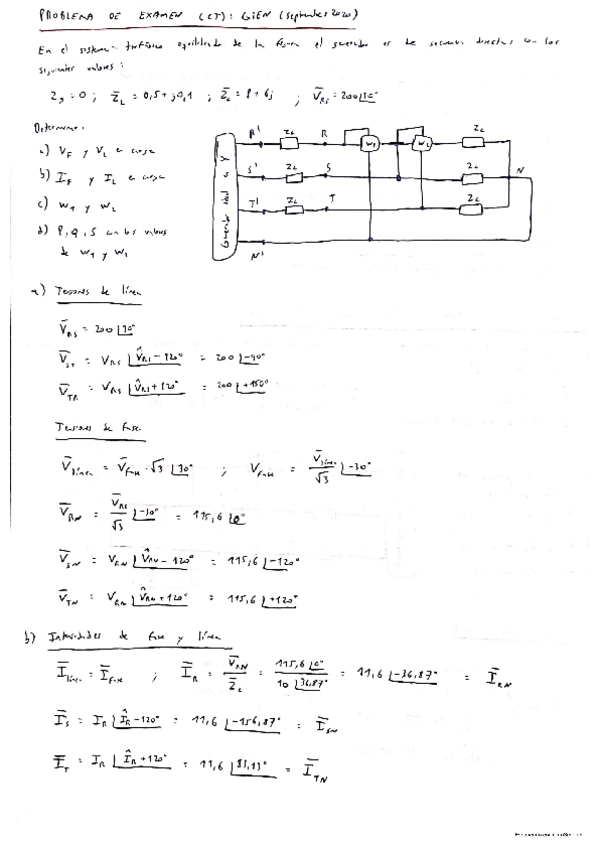 PROBLEMA DE EXAMEN (CT): GIEN (septiembre 2020)
En el sistema trifásico equilibrado de la figura el generador es de secuencia directa con los
siguientes valores:
Zg = 0 ; Z̄L = 0,5 + j0,1 ; Z̄c = 8 + 6j ; V̄RS = 200|30°
Determinar:
a) VF y VL en carga
b) IF y IL en carga
c) W1 y W2
d) P, Q, S con los valores
de W1 y W2
Generador ideal en Y
R' ZL R W1 W2 Zc
S' ZL S Zc N
T' ZL T Zc
N'
a) Tensiones de línea
V̄RS = 200|30°
V̄ST = VRS |V̂RS - 120° = 200|-90°
V̄TR = VRS |V̂RS + 120° = 200|+150°
Tensiones de fase
V̄línea = V̄fase · √3 |30° ; Vfase = V̄línea / √3 |-30°
V̄RN = V̄RS / √3 |-30° = 115,6|0°
V̄SN = VRN |V̂RN - 120° = 115,6|-120°
V̄TN = VRN |V̂RN + 120° = 115,6|+120°
b) Intensidades de fase y línea
Īlínea = Īfase ; ĪR = V̄RN / Z̄c = 115,6|0° / 10|36,87° = 11,6|-36,87° = ĪRN
ĪS = IR |ÎR - 120° = 11,6|-156,87° = ĪSN
ĪT = IR |ÎR + 120° = 11,6|83,13° = ĪTN